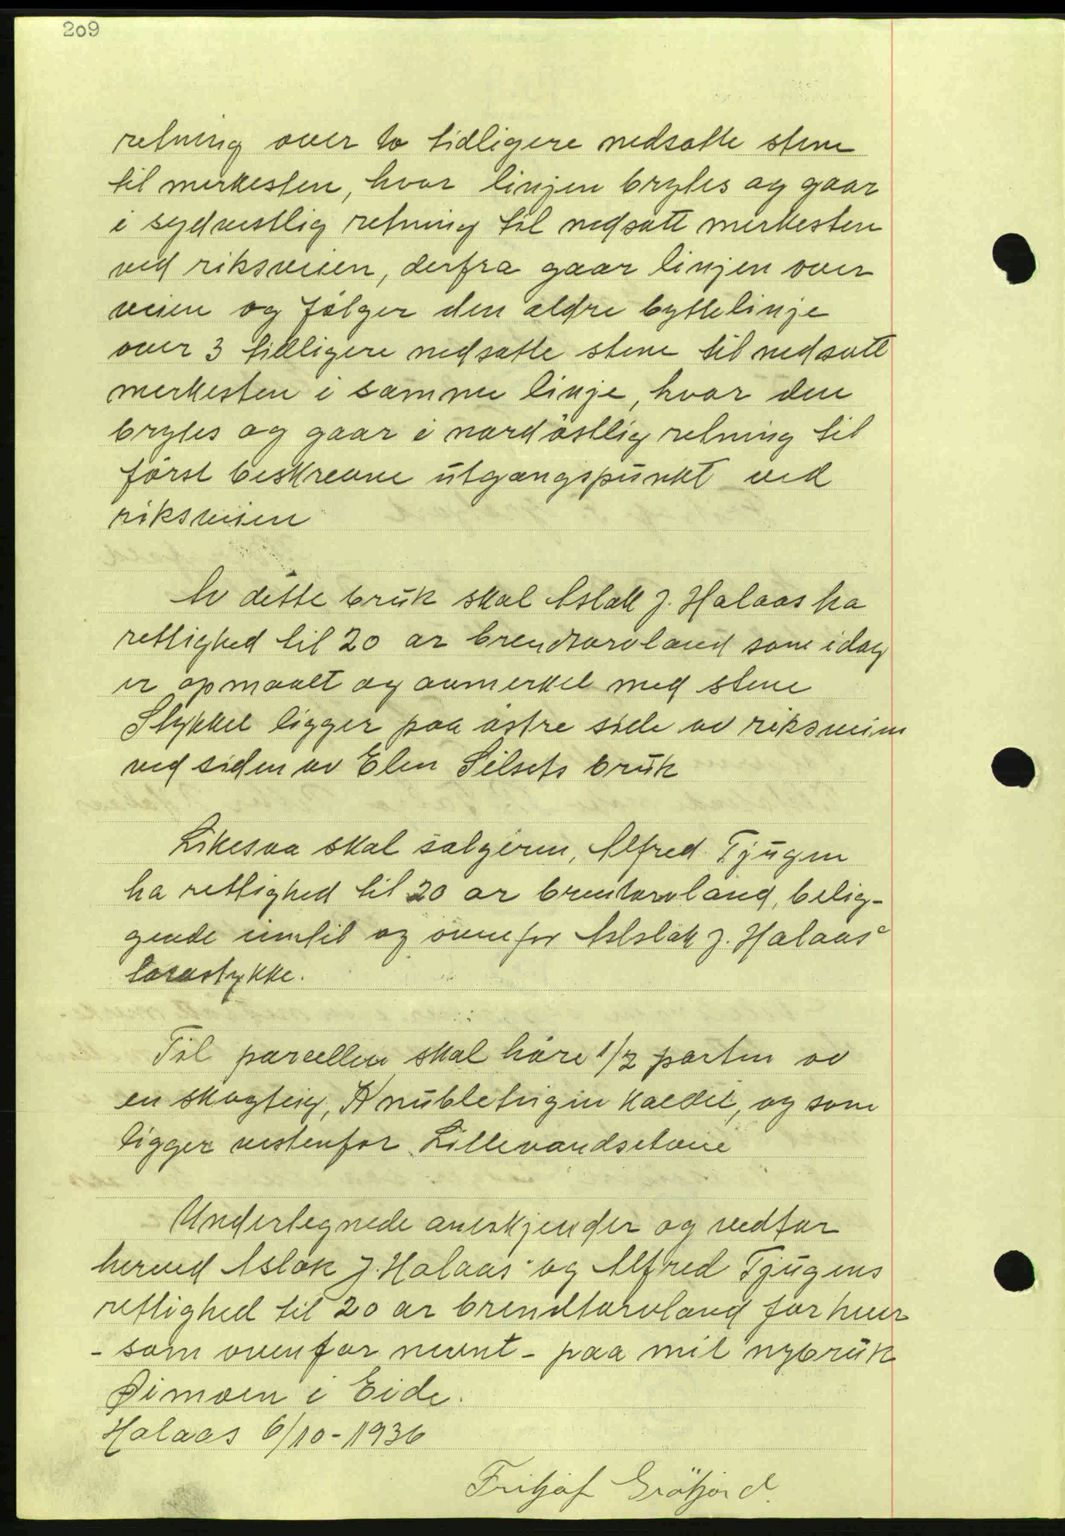 209
retning over to tidligere nedsatte stene
til merkesten, hvor linjen brytes og gaar
i sydvestlig retning til nedsatt merkesten
ved riksveien, derfra gaar linjen over
veien og følger den ældre byttelinje
over 3 tidligere nedsatte stene til nedsatt
merkesten i samme linje, hvor den
brytes og gaar i nordöstlig retning til
först beskrevne utgangspunkt ved
riksveien
Av dette bruk skal Aslak J. Halaas ha
rettighed til 20 ar brendtorvland som idag
er opmaalt og avmerket med stene
Stykket ligger paa östre side av riksveien
ved siden av Elen Silsets bruk
Likesaa skal sælgeren, Alfred Tjugen
ha rettighed til 20 ar brentorvland, belig-
gende inntil og ovenfor Aslak J. Halaas
torvstykke.
Til parcellen skal höre 1/2 parten av
en skogteig, Knubleteigen kaldet, og som
ligger vestenfor Lillevandsetrene
Undertegnede anerkjender og vedtar
herved Aslak J. Halaas og Alfred Tjugens
rettighed til 20 ar brendtorvland for hver
- som ovenfor nevnt - paa mit nybruk
Øimoen i Eide.
Halaas 6/10-1936
Fritjof Gröfjord.